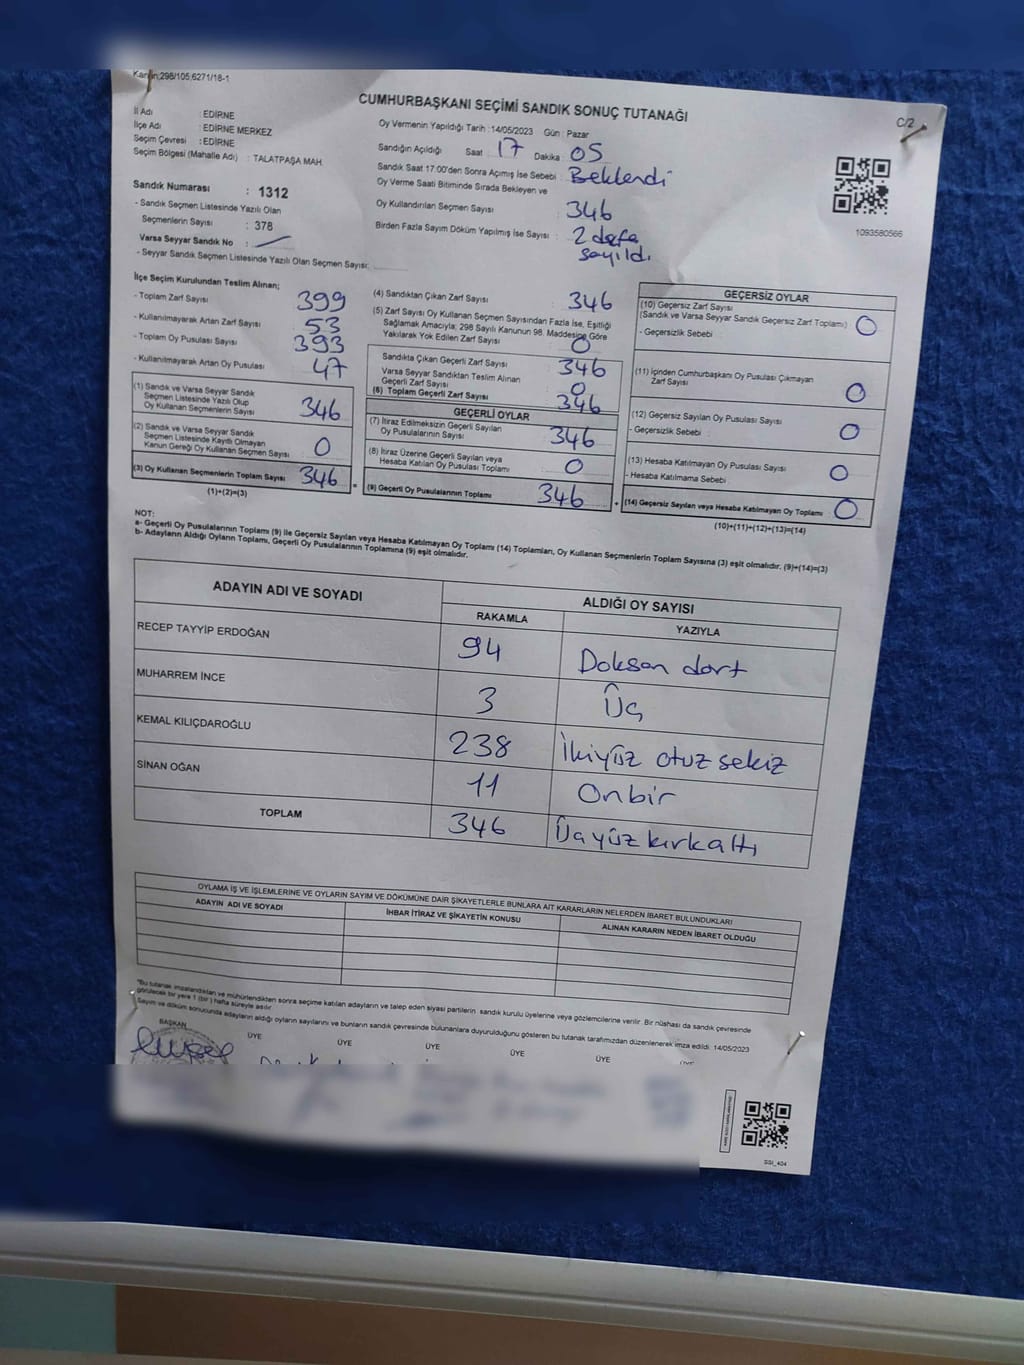 Kanun;298/105,6271/18-1
CUMHURBAŞKANI SEÇİMİ SANDIK SONUÇ TUTANAĞI
C/2
İl Adı : EDİRNE
İlçe Adı : EDİRNE MERKEZ
Seçim Çevresi : EDİRNE
Seçim Bölgesi (Mahalle Adı) : TALATPAŞA MAH.
Sandık Numarası : 1312
- Sandık Seçmen Listesinde Yazılı Olan
Seçmenlerin Sayısı : 378
Varsa Seyyar Sandık No :
- Seyyar Sandık Seçmen Listesinde Yazılı Olan Seçmen Sayısı:
Oy Vermenin Yapıldığı Tarih :14/05/2023 Gün : Pazar
Sandığın Açıldığı Saat 17 Dakika : 05
Sandık Saat 17.00'den Sonra Açılmış İse Sebebi : Beklendi
Oy Verme Saati Bitiminde Sırada Bekleyen ve
Oy Kullandırılan Seçmen Sayısı : 346
Birden Fazla Sayım Döküm Yapılmış İse Sayısı : 2 defa
sayıldı
1093580566
İlçe Seçim Kurulundan Teslim Alınan;
- Toplam Zarf Sayısı 399
- Kullanılmayarak Artan Zarf Sayısı : 53
- Toplam Oy Pusulası Sayısı : 393
- Kullanılmayarak Artan Oy Pusulası : 47
(1) Sandık ve Varsa Seyyar Sandık
Seçmen Listesinde Yazılı Olup
Oy Kullanan Seçmenlerin Sayısı : 346
(2) Sandık ve Varsa Seyyar Sandık
Seçmen Listesinde Kayıtlı Olmayan
Kanun Gereği Oy Kullanan Seçmen Sayısı : 0
(3) Oy Kullanan Seçmenlerin Toplam Sayısı : 346
(1)+(2)=(3)
(4) Sandıktan Çıkan Zarf Sayısı : 346
(5) Zarf Sayısı Oy Kullanan Seçmen Sayısından Fazla İse, Eşitliği
Sağlamak Amacıyla; 298 Sayılı Kanunun 98. Maddesine Göre
Yakılarak Yok Edilen Zarf Sayısı : 0
Sandıkta Çıkan Geçerli Zarf Sayısı : 346
Varsa Seyyar Sandıktan Teslim Alınan
Geçerli Zarf Sayısı : 0
(6) Toplam Geçerli Zarf Sayısı : 346
GEÇERLİ OYLAR
(7) İtiraz Edilmeksizin Geçerli Sayılan
Oy Pusulalarının Sayısı : 346
(8) İtiraz Üzerine Geçerli Sayılan veya
Hesaba Katılan Oy Pusulası Toplamı : 0
= (9) Geçerli Oy Pusulalarının Toplamı : 346
GEÇERSİZ OYLAR
(10) Geçersiz Zarf Sayısı
(Sandık ve Varsa Seyyar Sandık Geçersiz Zarf Toplamı) : 0
- Geçersizlik Sebebi :
(11) İçinden Cumhurbaşkanı Oy Pusulası Çıkmayan
Zarf Sayısı : 0
(12) Geçersiz Sayılan Oy Pusulası Sayısı : 0
- Geçersizlik Sebebi :
(13) Hesaba Katılmayan Oy Pusulası Sayısı : 0
- Hesaba Katılmama Sebebi
+ (14) Geçersiz Sayılan veya Hesaba Katılmayan Oy Toplamı : 0
(10)+(11)+(12)+(13)=(14)
NOT:
a- Geçerli Oy Pusulalarının Toplamı (9) ile Geçersiz Sayılan veya Hesaba Katılmayan Oy Toplamı (14) Toplamları, Oy Kullanan Seçmenlerin Toplam Sayısına (3) eşit olmalıdır. (9)+(14)=(3)
b- Adayların Aldığı Oyların Toplamı, Geçerli Oy Pusulalarının Toplamına (9) eşit olmalıdır.
ADAYIN ADI VE SOYADI ALDIĞI OY SAYISI
RAKAMLA YAZIYLA
RECEP TAYYİP ERDOĞAN 94 Doksan dört
MUHARREM İNCE 3 Üç
KEMAL KILIÇDAROĞLU 238 İkiyüz otuz sekiz
SİNAN OĞAN 11 Onbir
TOPLAM 346 Üçyüz kırkaltı
OYLAMA İŞ VE İŞLEMLERİNE VE OYLARIN SAYIM VE DÖKÜMÜNE DAİR ŞİKAYETLERLE BUNLARA AİT KARARLARIN NELERDEN İBARET BULUNDUKLARI
ADAYIN ADI VE SOYADI İHBAR İTİRAZ VE ŞİKAYETİN KONUSU ALINAN KARARIN NEDEN İBARET OLDUĞU
"Bu tutanak imzalandıktan ve mühürlendikten sonra seçime katılan adayların ve talep eden siyasi partilerin sandık kurulu üyelerine veya gözlemcilerine verilir. Bir nüshası da sandık çevresinde
görülecek bir yere 1 (bir) hafta süreyle asılır.
Sayım ve döküm sonucunda adayların aldığı oyların sayılarını ve bunların sandık çevresinde bulunanlara duyurulduğunu gösteren bu tutanak tarafımızdan düzenlenerek imza edildi: 14/05/2023
BAŞKAN ÜYE ÜYE ÜYE ÜYE ÜYE ÜYE
SSI_404